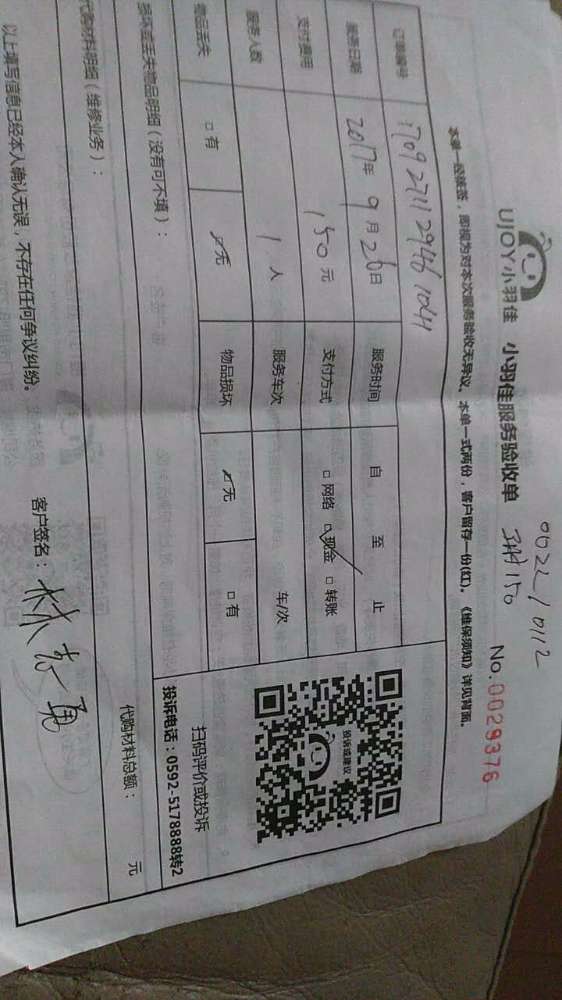 UJOY小羽佳 小羽佳服务验收单
0022/0112
150
No.0029376
本单一经签签，即视为对本次服务验收无异议。本单一式两份，客户留存一份(红)。《维保须知》详见背面。
订单编号 170927112946104 服务时间 自 至 止
服务日期 2017年9月26日 支付方式 □网络 ☑现金 □转账
支付费用 150元
服务人数 1人 服务车次 车/次
物品丢失 □有 ☑无 物品损坏 ☑无 □有
投诉或建议
扫码评价或投诉
投诉电话：0592-5178888转2
损坏或丢失物品明细（没有可不填）：
代购材料明细（维修业务）：
代购材料总额： 元
以上填写信息已经本人确认无误，不存在任何争议纠纷。 客户签名：林